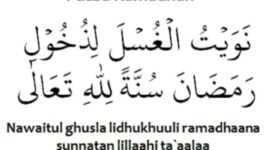 نَوَيْتُ الْغُسْلَ لِدُخُوْلِ
رَمَضَانَ سُنَّةً لِلّٰهِ تَعَالَى
Nawaitul ghusla lidhukhuuli ramadhaana
sunnatan lillaahi ta`aalaa